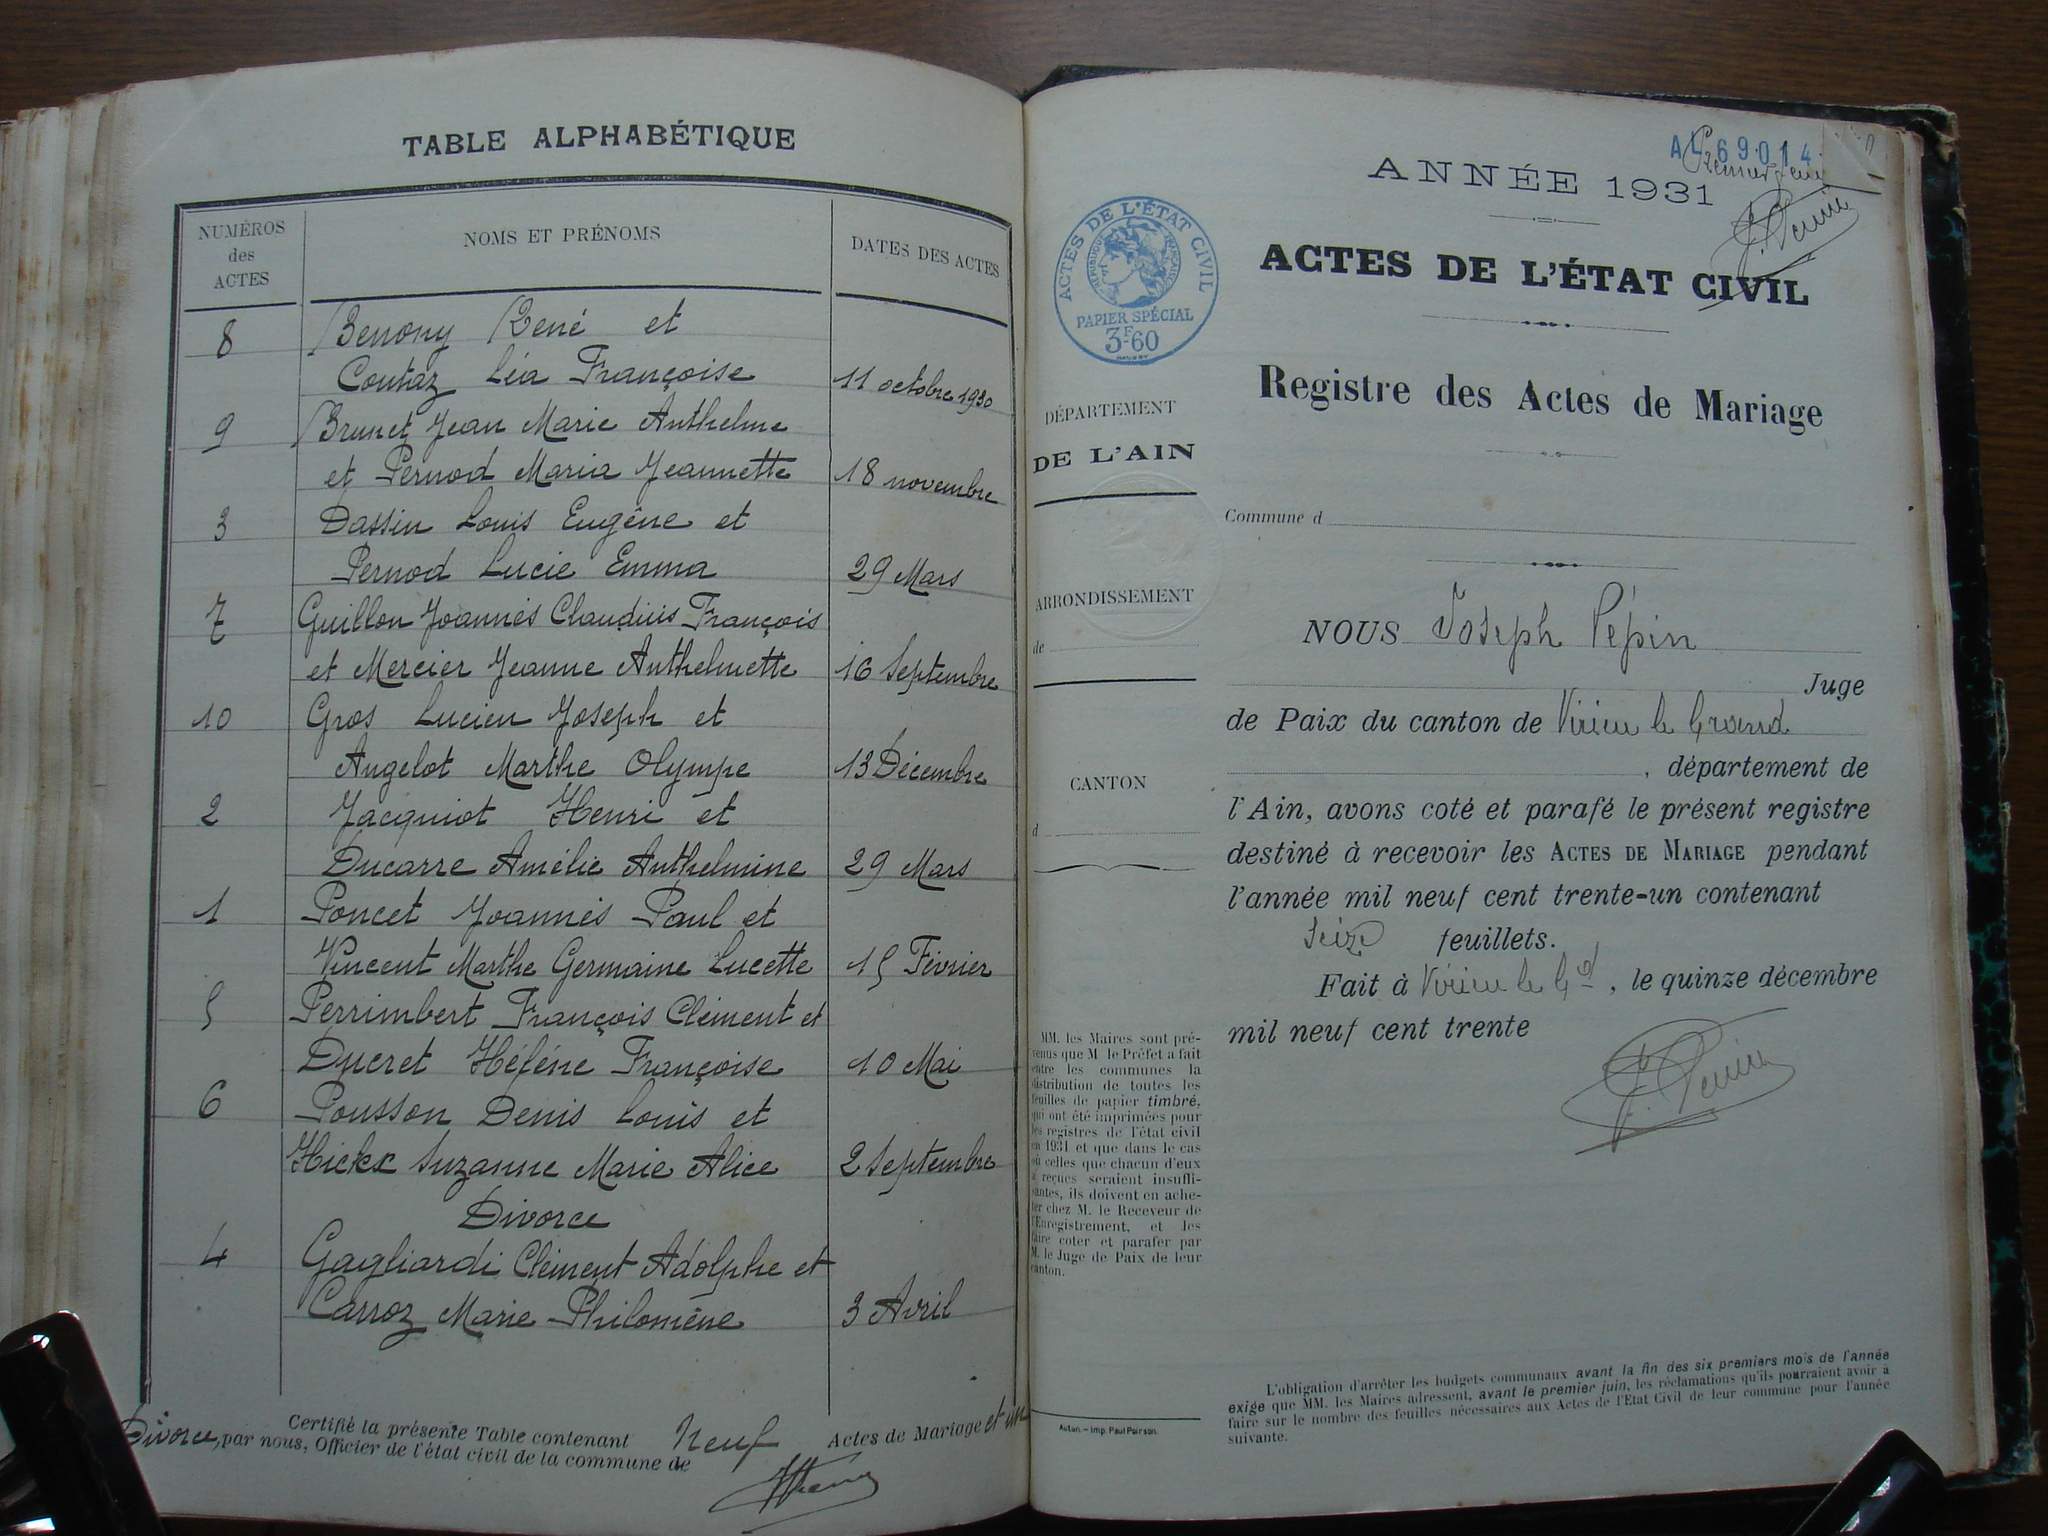 TABLE ALPHABÉTIQUE
NUMÉROS des ACTES
NOMS ET PRÉNOMS
DATES DES ACTES
8 Benony René et
Coutaz Léa Françoise 11 octobre 1930
9 Brunet Jean Marie Anthelme
et Pernod Maria Jeannette 18 novembre
3 Dassin Louis Eugène et
Pernod Lucie Emma 29 Mars
7 Guillon Joannès Claudius François
et Mercier Jeanne Anthelmette 16 Septembre
10 Gros Lucien Joseph et
Angelot Marthe Olympe 13 Décembre
2 Jacquiot Henri et
Ducarre Amélie Anthelmine 29 Mars
1 Poncet Joannès Paul et
Vincent Marthe Germaine Lucette 15 Février
5 Perrimbert François Clément et
Ducret Hélène Françoise 10 Mai
6 Pousson Denis Louis et
Suzanne Marie Alice 2 Septembre
Divorce
4 Gagliardi Clément Adolphe et
Carroz Marie Philomène 3 Avril
Certifié la présente Table contenant Neuf Actes de Mariage et un
Divorce, par nous, Officier de l'état civil de la commune de
AL 69014
Premier
ANNÉE 1931
ACTES DE L'ÉTAT CIVIL
RÉPUBLIQUE FRANÇAISE
PAPIER SPÉCIAL
3F60
ACTES DE L'ÉTAT CIVIL
Registre des Actes de Mariage
DÉPARTEMENT
DE L'AIN
Commune d
ARRONDISSEMENT
de
CANTON
d
NOUS Joseph Pépin
Juge
de Paix du canton de Virieu le Grand
, département de
l'Ain, avons coté et parafé le présent registre
destiné à recevoir les ACTES DE MARIAGE pendant
l'année mil neuf cent trente-un contenant
seize feuillets.
Fait à Virieu le Gd, le quinze décembre
mil neuf cent trente
MM. les Maires sont pré-
venus que M. le Préfet a fait
entre les communes la
distribution de toutes les
feuilles de papier timbré,
qui ont été imprimées pour
les registres de l'état civil
en 1931 et que dans le cas
où celles que chacun d'eux
a reçues seraient insuffi-
santes, ils doivent en ache-
ter chez M. le Receveur de
l'Enregistrement, et les
faire coter et parafer par
M. le Juge de Paix de leur
canton.
Autun. — Imp. Paul Poirson.
L'obligation d'arrêter les budgets communaux avant la fin des six premiers mois de l'année
exige que MM. les Maires adressent, avant le premier juin, les réclamations qu'ils pourraient avoir à
faire sur le nombre des feuilles nécessaires aux Actes de l'Etat Civil de leur commune pour l'année
suivante.